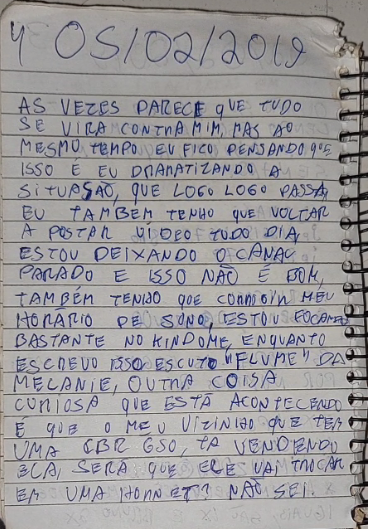 4 05/02/2019
AS VEZES PARECE QUE TUDO
SE VIRA CONTRA MIM, MAS AO
MESMO TEMPO, EU FICO PENSANDO QUE
ISSO É EU DRAMATIZANDO A
SITUASÃO, QUE LOGO LOGO PASSA,
EU TAMBEM TENHO QUE VOLTAR
A POSTAR VIDEO TODO DIA,
ESTOU DEIXANDO O CANAL
PARADO E ISSO NÃO É BOM,
TAMBÉM TENHO QUE CORRIGIR MEU
HORÁRIO DE SONO, ESTOU FOCANDO
BASTANTE NO KINDOME, ENQUANTO
ESCREVO ISSO ESCUTO "FLUME" DA
MELANIE, OUTRA COISA
CURIOSA QUE ESTÁ ACONTECENDO
É QUE O MEU VIZINHO QUE TEM
UMA CBR 650, TA VENDENDO
ELA, SERÁ QUE ELE VAI TROCAR
EM UMA HORNET? NÃO SEI.